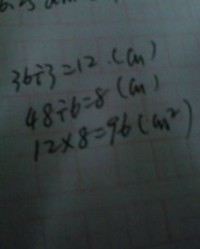 36÷3=12.(cm)
48÷6=8(cm)
12×8=96(cm²)